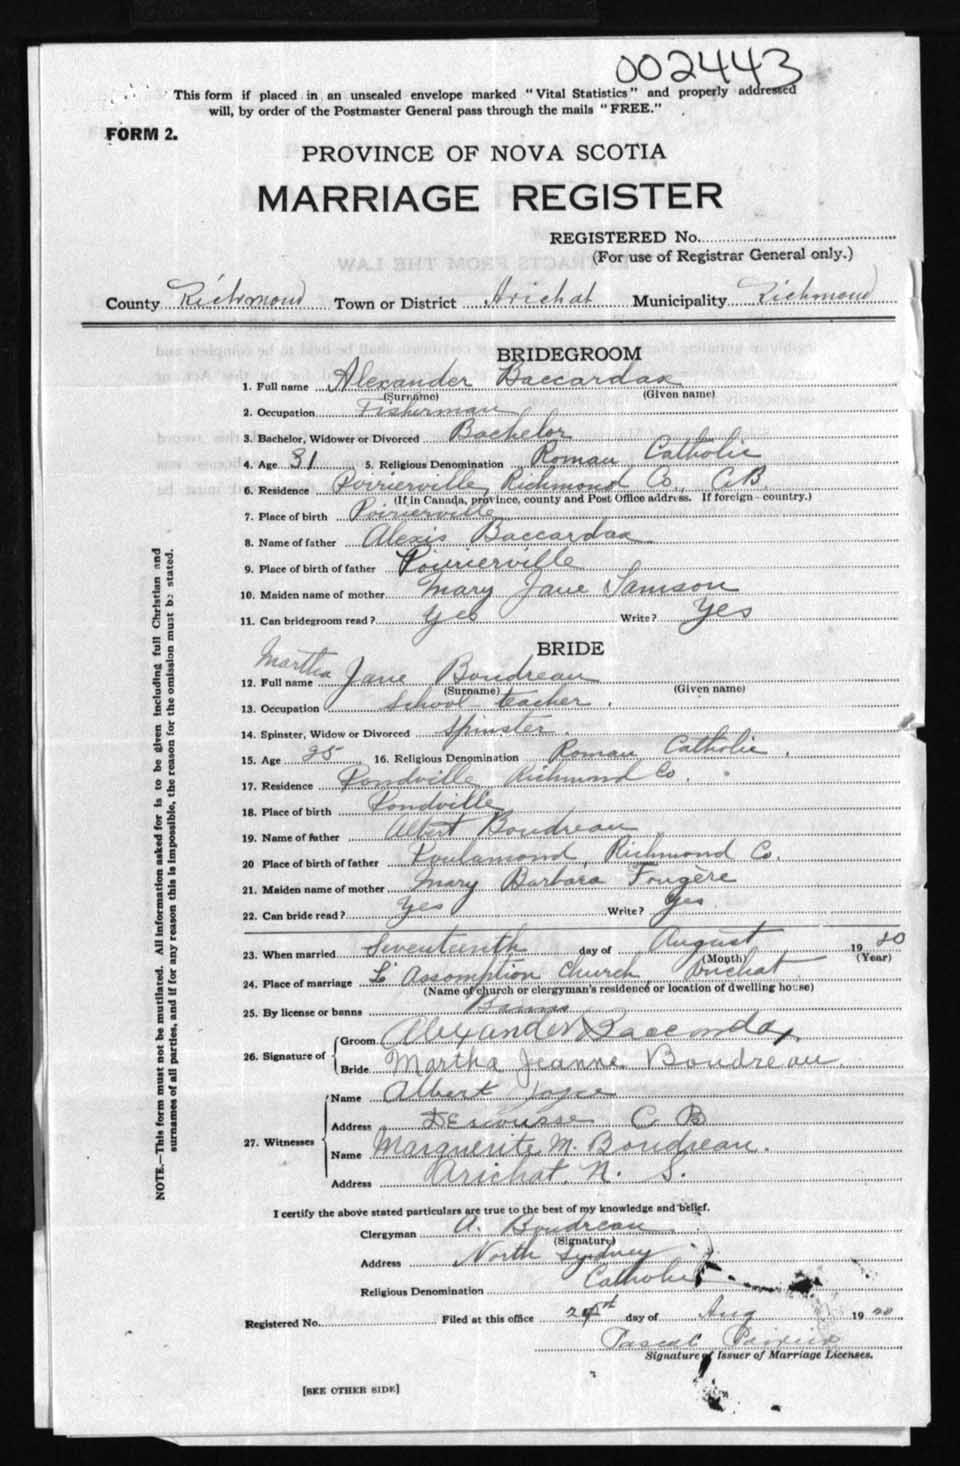 002443
This form if placed in an unsealed envelope marked "Vital Statistics" and properly addressed
will, by order of the Postmaster General pass through the mails "FREE."
FORM 2.
PROVINCE OF NOVA SCOTIA
MARRIAGE REGISTER
REGISTERED No.
(For use of Registrar General only.)
County Richmond Town or District Arichat Municipality Richmond
BRIDEGROOM
1. Full name Alexander Baccardax
(Surname) (Given name)
2. Occupation Fisherman
3. Bachelor, Widower or Divorced Bachelor
4. Age 31 5. Religious Denomination Roman Catholic
6. Residence Poirierville, Richmond Co., C.B.
(If in Canada, province, county and Post Office address. If foreign - country.)
7. Place of birth Poirierville
8. Name of father Alexis Baccardax
9. Place of birth of father Poirierville
10. Maiden name of mother Mary Jane Samson
11. Can bridegroom read? Yes Write? Yes
BRIDE
12. Full name Martha Jane Boudreau
(Surname) (Given name)
13. Occupation School teacher.
14. Spinster, Widow or Divorced Spinster.
15. Age 25 16. Religious Denomination Roman Catholic.
17. Residence Pondville Richmond Co.
18. Place of birth Pondville
19. Name of father Albert Boudreau
20 Place of birth of father Poulamond, Richmond Co.
21. Maiden name of mother Mary Barbara Fougère
22. Can bride read? Yes Write? Yes
23. When married Seventeenth day of August 1920
(Month) (Year)
24. Place of marriage L'Assomption Church Arichat
(Name of church or clergyman's residence or location of dwelling house)
25. By license or banns Banns
26. Signature of Groom Alexander Baccardax
Bride Martha Jeanne Boudreau.
27. Witnesses Name Albert Joyce
Address Descousse C B
Name Marguerite M. Boudreau.
Address Arichat, N. S.
I certify the above stated particulars are true to the best of my knowledge and belief.
Clergyman A. Boudreau
(Signature)
Address North Sydney
Religious Denomination Catholic
Registered No. Filed at this office day of Aug 1920
Pascal Poirier
Signature of Issuer of Marriage Licenses.
[SEE OTHER SIDE]
NOTE.—This form must not be mutilated. All information asked for is to be given including full Christian and
surnames of all parties, and if for any reason this is impossible, the reason for the omission must be stated.